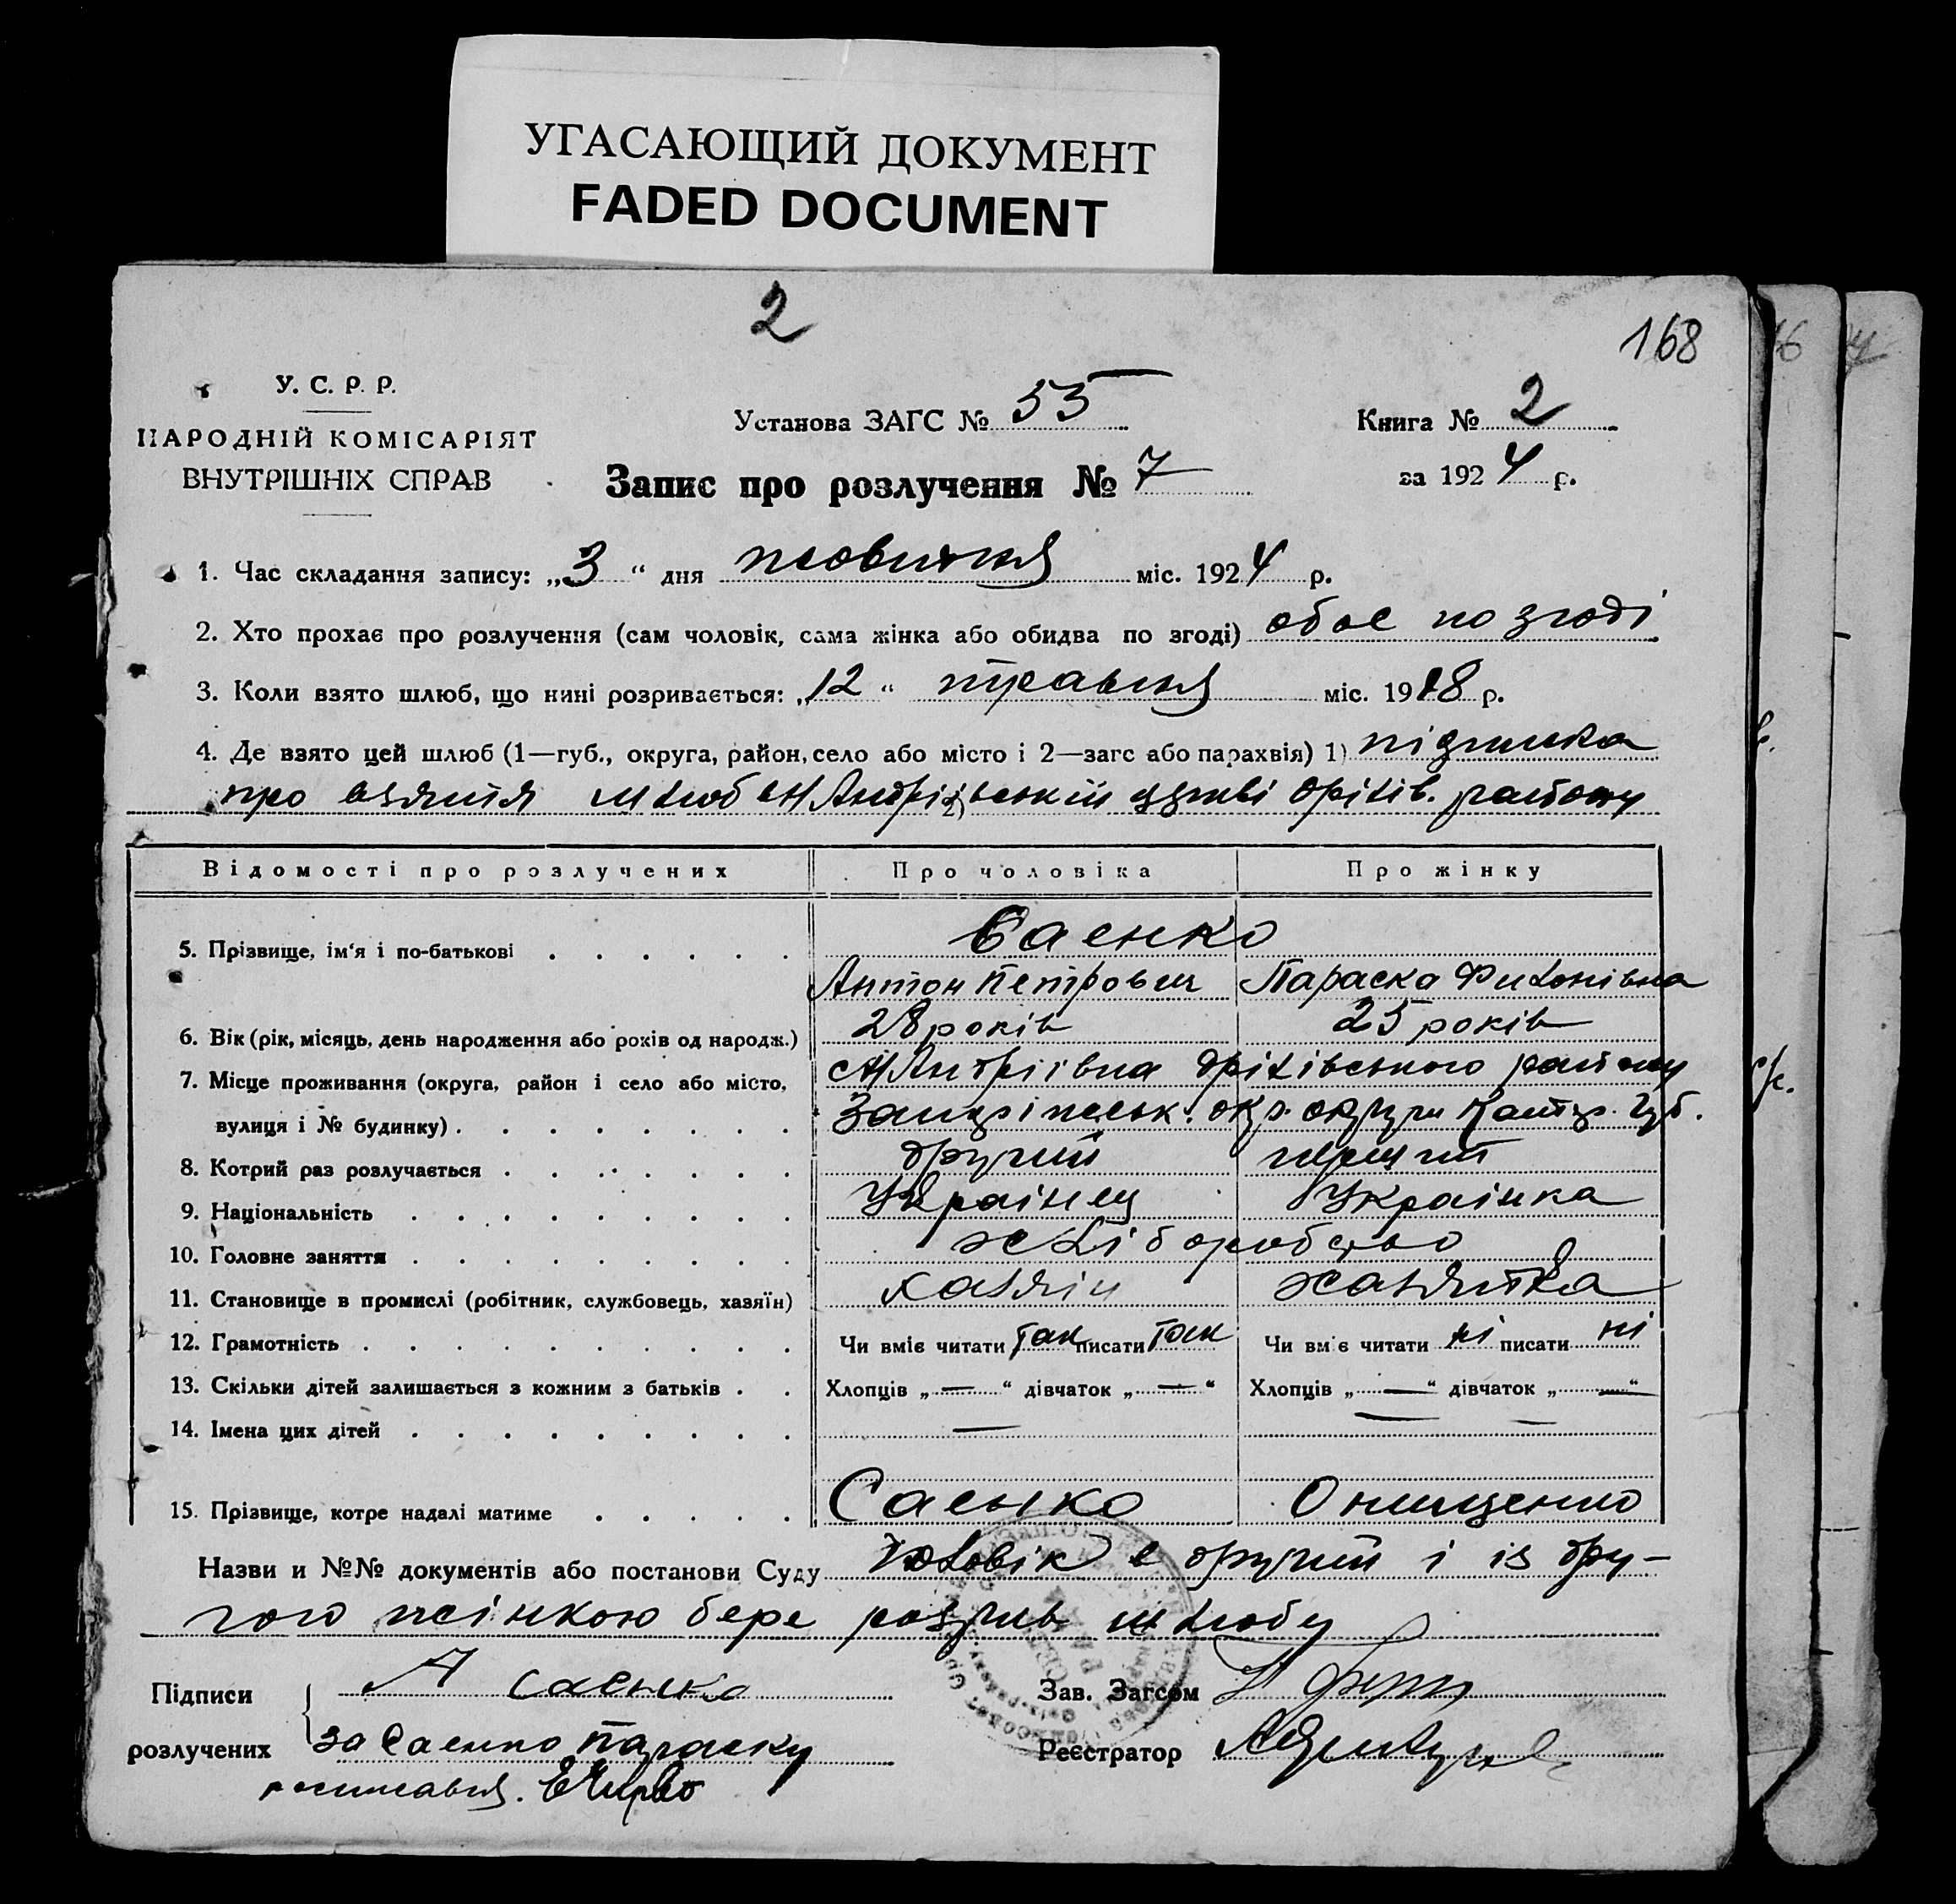 УГАСАЮЩИЙ ДОКУМЕНТ
FADED DOCUMENT
2
168
У. С. Р. Р.
НАРОДНІЙ КОМІСАРІЯТ
ВНУТРІШНІХ СПРАВ
Установа ЗАГС № 55
Книга № 2
за 1924 р.
Запис про розлучення № 7
1. Час складання запису: „3“ дня жовтня міс. 1924 р.
2. Хто прохає про розлучення (сам чоловік, сама жінка або обидва по згоді) обоє по згоді
3. Коли взято шлюб, що нині розривається: „12“ травня міс. 1918 р.
4. Де взято цей шлюб (1—губ., округа, район, село або місто і 2—загс або парахвія) 1) підписка
про взяття шлюб 2) церкві Оріхів. району
Відомості про розлучених Про чоловіка Про жінку
5. Прізвище, ім'я і по-батькові Саенко
Антон Петрович Параска Филонівна
6. Вік (рік, місяць, день народження або років од народж.) 28 років 25 років
7. Місце проживання (округа, район і село або місто, Андріівна Оріхівського району
вулиця і № будинку) округи Губ.
8. Котрий раз розлучається другий перший
9. Національність Украінец Украінка
10. Головне заняття хліборобство
11. Становище в промислі (робітник, службовець, хазяїн) хазяін хазяйка
12. Грамотність Чи вміє читати так писати так Чи вміє читати ні писати ні
13. Скільки дітей залишається з кожним з батьків Хлопців „—“ дівчаток „—“ Хлопців „—“ дівчаток „—“
14. Імена цих дітей —
15. Прізвище, котре надалі матиме Саенко Онищенко
Назви и №№ документів або постанови Суду Чоловік е другий і із дру-
гою жінкою бере розрив шлюбу
Підписи А Саенко Зав. Загсом
розлучених за Саенко Параску Реєстратор
росписався.